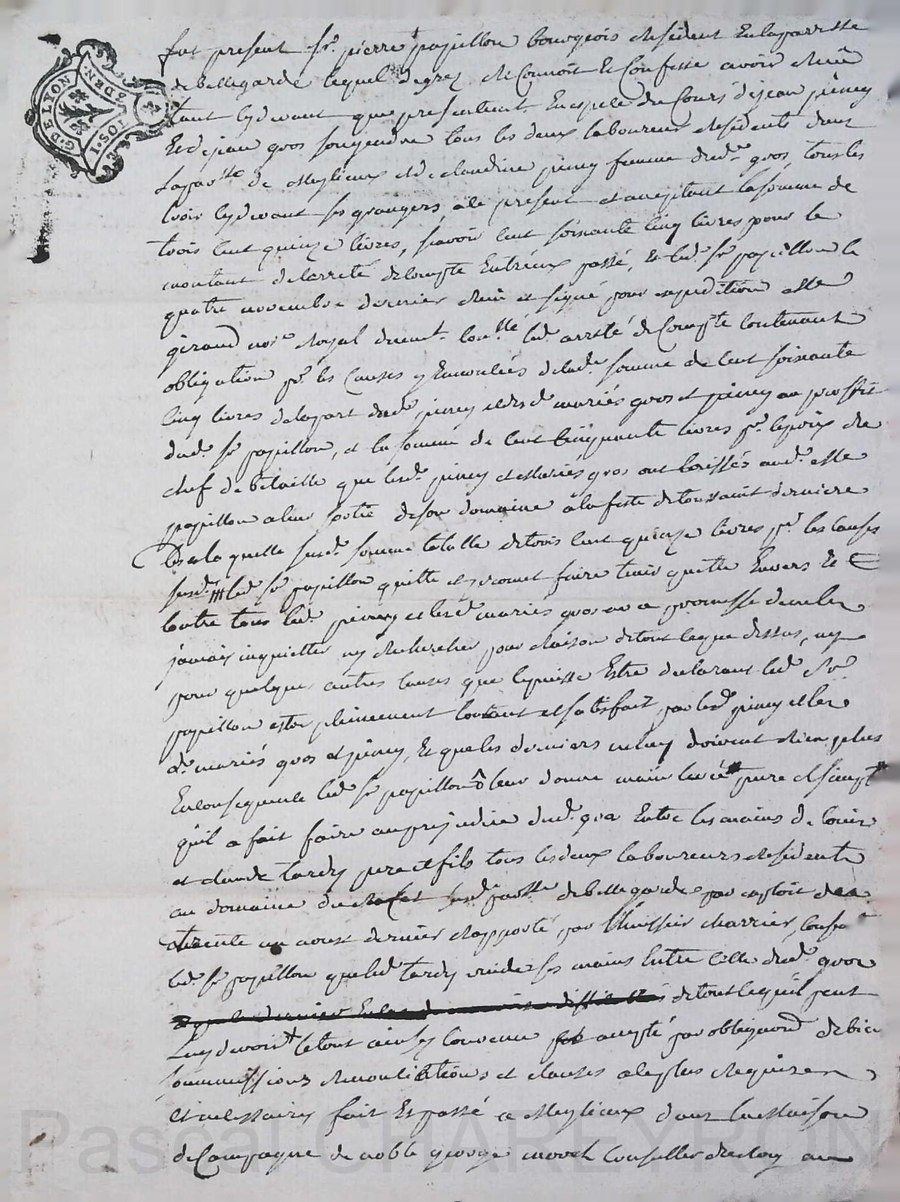 G. DE LYON
10 S. 1 DEN.
fut present Sr. pierre papillon bourgeois Résident En la parroisse
de Bellegarde lequel de gré Reconnoit Et Confesse avoir Reçeu
tant cydevant que presentement En espece du Cours de jean piney
Et de jean gros son gendre tous les deux laboureurs Résidents dans
la parsse. de Meylieux Et de claudine piney femme dudt. gros, tous les
trois cydevant ses grangers, à le present et acceptant la somme de
trois Cent quinze livres, sçavoir Cent soixante Cinq livres pour le
montant de larreté de Compte Entreux passé, Et ledt. Sr. papillon le
quatre novembre dernier Reçu et signé pour expedition Me
giraud noire. Royal dument Con.llé ledt. arreté de Compte Contenant
obligation pr. les Causes y Enoncées de ladt. somme de Cent soixante
Cinq livres de la part dudt. piney et desdt. mariés gros et piney au proffit
dudt. Sr. papillon, et la somme de Cent Cinquante livres pr. le prix du
chef de bétaille que lesdt. piney et Mariés gros ont laissés audt.
papillon a leur sortie de son domaine à la feste de toussaint derniere
de la quelle susdt. somme totalle de trois Cent quinze livres pr. les causes
susdt. ledt. Sr. papillon quitte et promet faire tenir quitte Envers Et
Contre tous ledt. piney et lesdt. mariés gros avec promesse de ne les
jamais inquietter ny Rechercher pour Raison de tout ce que dessus, ny
pour quelques autres Causes que ce puisse Estre declarant ledt. Sr.
papillon estre pleinement Content et satisfait par lesdt. piney et les
dt. mariés gros et piney, Et que les derniers ne luy doivent Rien plus
En Consequence ledt. Sr. papillon leur donne main levée pure et simple
qu'il a fait faire au prejudice dudt. gros Entre les mains de louis
et claude tardy pere et fils tous les deux laboureurs Résidents
au domaine du susdt. parsse. de Bellegarde par exploit de
aoust dernier Rapporté par l'huissier charrier, Consent
ledt. Sr. papillon que ledt. tardy vuide ses mains Entre Celle dudt. gros
de tout Ce qu'il peut
Luy devoir le tout ainsy Convenu accepté par obligaõns de biens
soummissions Renonciations et clauses a le plus Requises
Et necessaires fait Et passé a Meylieux dans la Maison
de Campagne de noble george Conseiller du Roy au
Pascal CHAREYRON